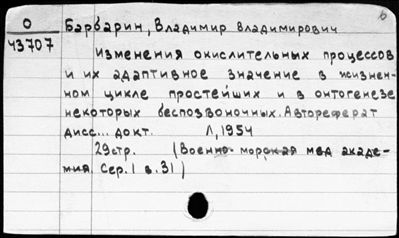 О Барбарин, Владимир Владимирович
43707
Изменения окислительных процессов
и их адаптивное значение в жизнен-
ном цикле простейших и в онтогенезе
некоторых беспозвоночных. Автореферат
дисс... докт. Л, 1954
29стр. (Военно-морская мед акаде-
мия. Сер. 1 в. 31)